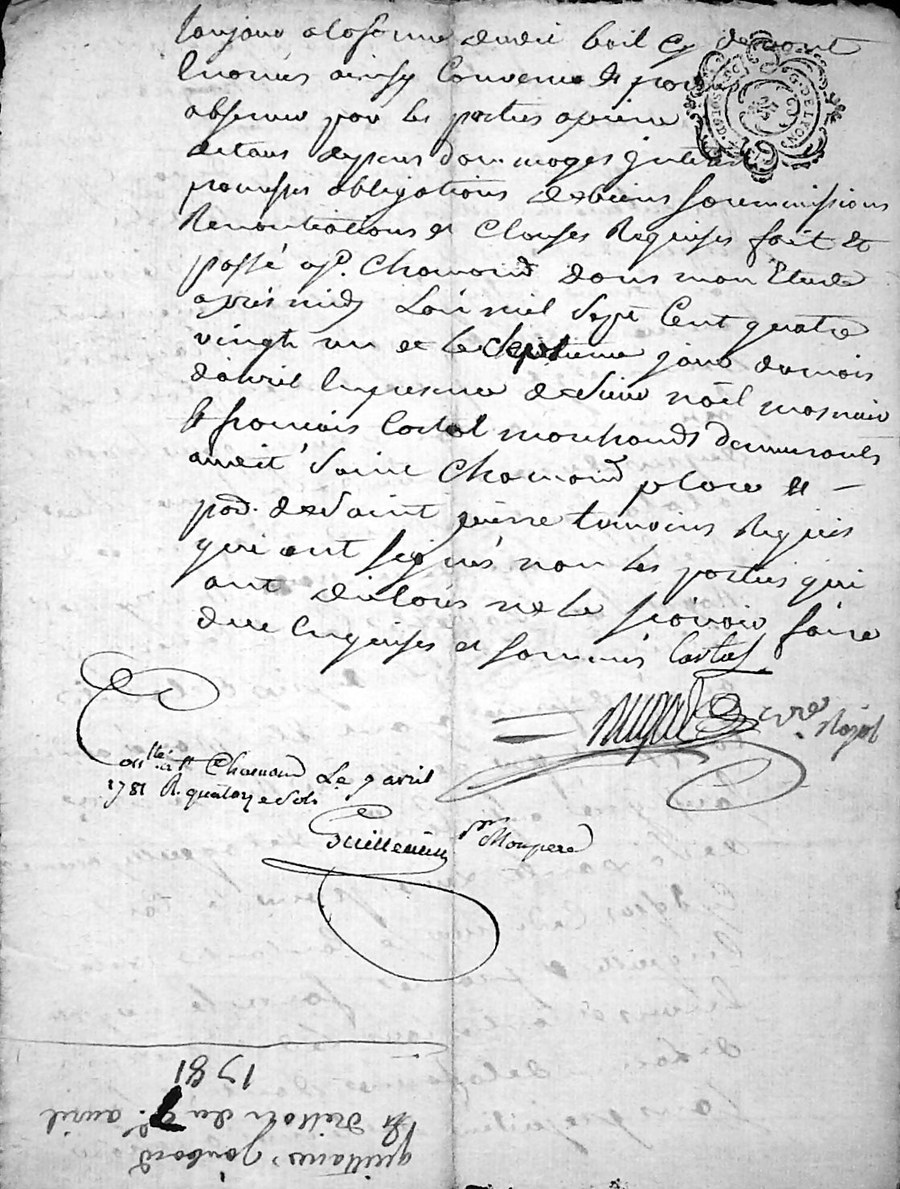 toujour a la forme dudit bail cy devant
Enoncés ainsy Convenu et promis
observer par les parties a peine
de tous depens dommages
promesses obligations de biens soummissions
Renontiations et Clauses Requises fait et
passé a St. Chamond dans mon Etude
après midy L'an mil Sept Cent quatre
vingt un et le Septieme jour du mois
d'avril En presence de Sieur noël
et françois Costal marchands demeurants
audit Saint Chamond place et
pad. de Saint pierre temoins Requis
qui ont signés non les parties qui
ont declarés ne le sçavoir faire
due Enquises et sommés Costal
nre Royal
Conllé a St Chamond Le 9 avril
1781 R. quatorze sols
Guillemin pr Mon pere
G. DE LYON
DEUX SOLS
quittance,
du 7e. avril
1781